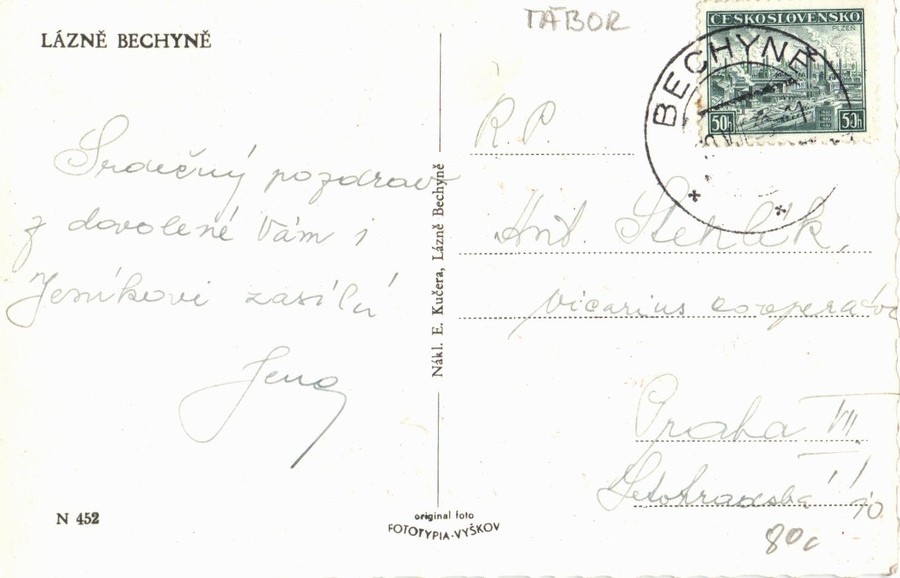 TÁBOR
LÁZNĚ BECHYNĚ
ČESKOSLOVENSKO
PLZEŇ
50h 50h
BECHYNĚ
Srdečný pozdrav
z dovolené Vám i
Jeníkovi zasílá
Nákl. E. Kučera, Lázně Bechyně
R.P.
Ant. Stehlík,
vicarius cooperator
Praha VII
Letohradská 10
80c
N 452
original foto
FOTOTYPIA-VYŠKOV